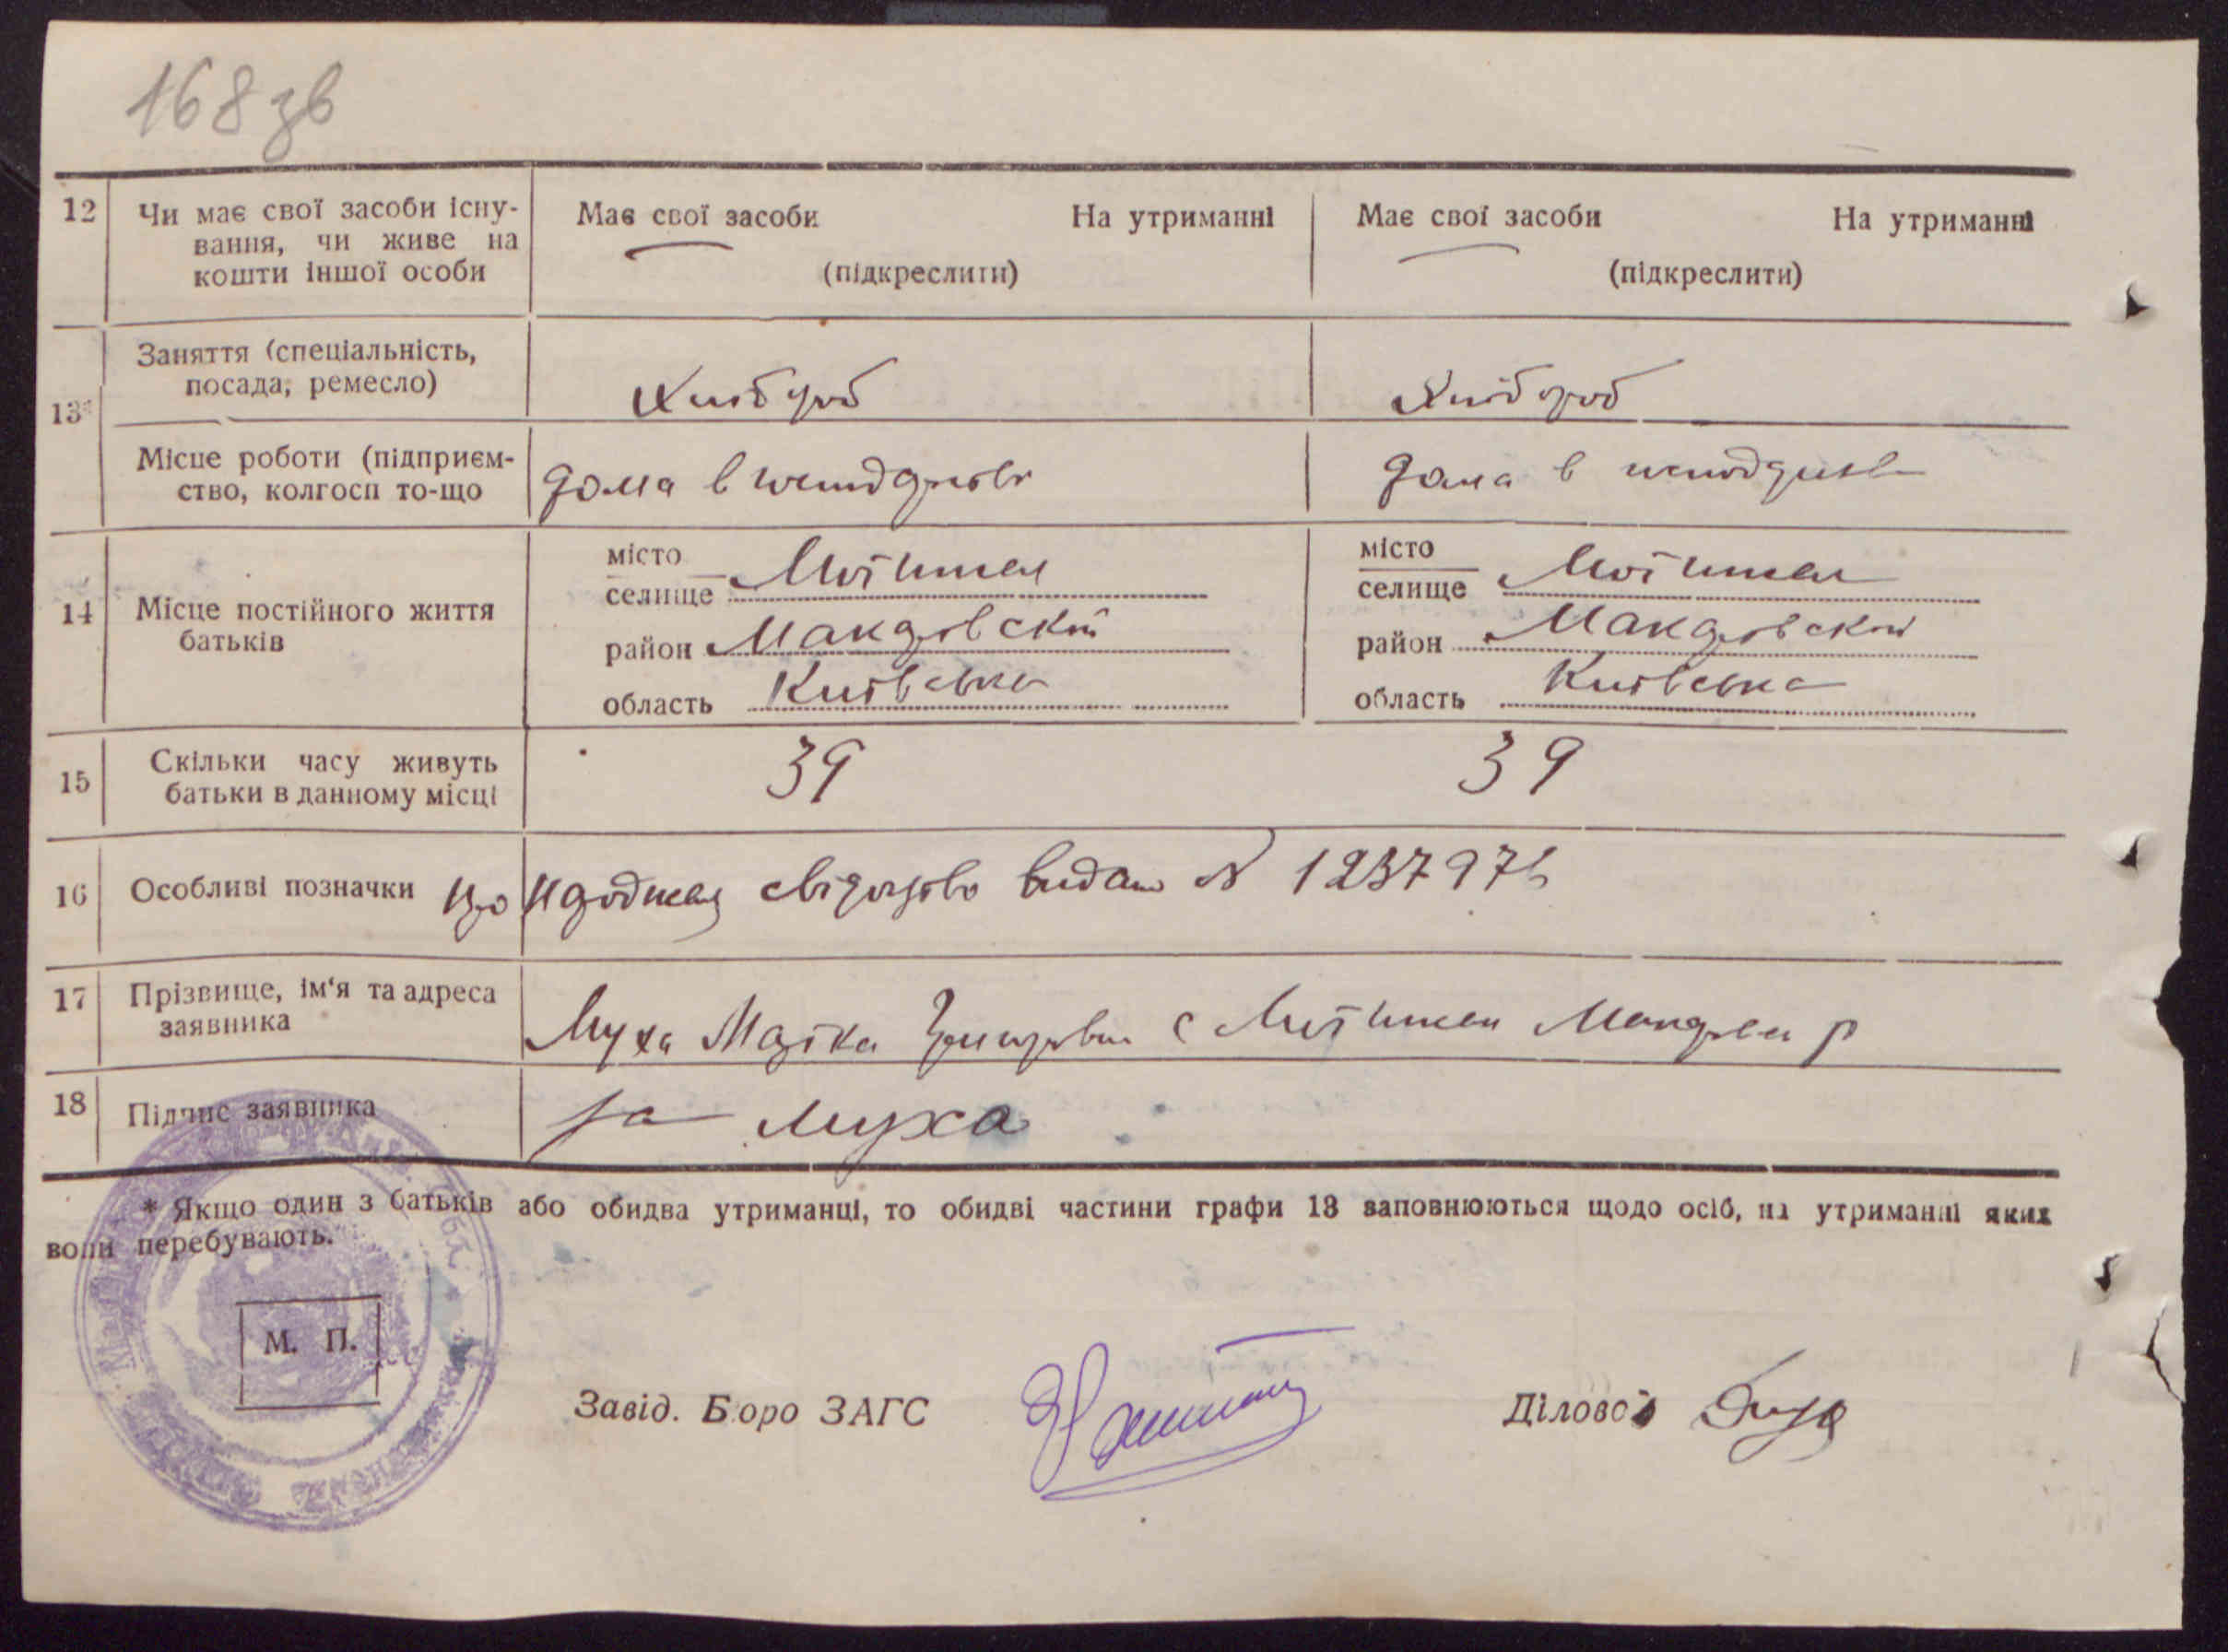 168 зв
12 Чи має свої засоби існу-
вання, чи живе на
кошти іншої особи
Має свої засоби На утриманні
(підкреслити)
Має свої засоби На утриманні
(підкреслити)
13*
Заняття (спеціальність,
посада, ремесло)
Хлібороб
Хлібороб
Місце роботи (підприєм-
ство, колгосп то-що
дома в
дома в
14 Місце постійного життя
батьків
місто
селище Мотижен
район Макаровский
область Київська
місто
селище Мотижен
район Макаровский
область Київська
15 Скільки часу живуть
батьки в данному місці
39
39
16 Особливі позначки про народжен свідоцтво видано № 1237976
17 Прізвище, ім'я та адреса
заявника
Муха с Мотижен р
18 Підпис заявника
за Муха
* Якщо один з батьків або обидва утриманці, то обидві частини графи 13 заповнюються щодо осіб, на утриманні яких
вони перебувають.
М. П.
Завід. Бюро ЗАГС
Діловод